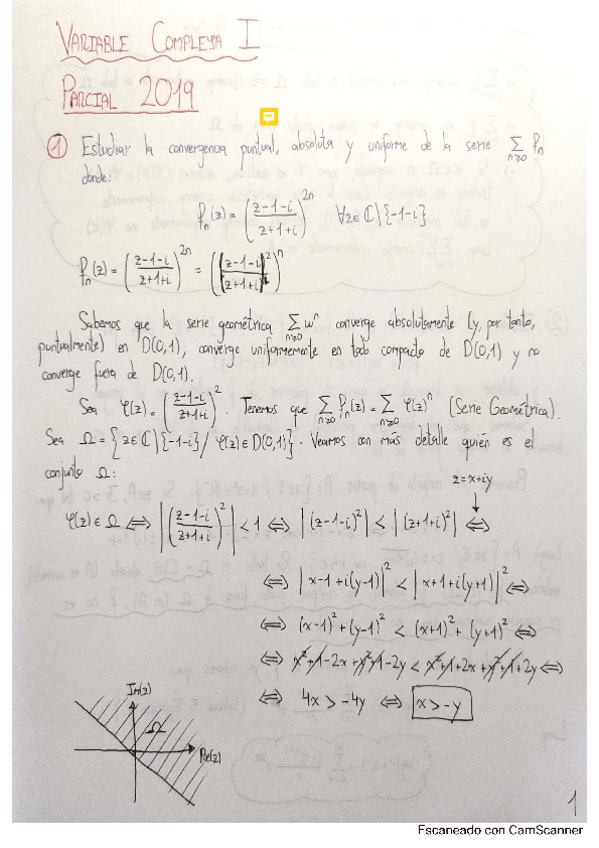 VARIABLE COMPLEJA I
PARCIAL 2019
① Estudiar la convergencia puntual, absoluta y uniforme de la serie ∑_{n≥0} f_n
donde:
f_n(z) = ((z-1-i)/(z+1+i))^{2n} ∀z∈ℂ\{-1-i}
f_n(z) = ((z-1-i)/(z+1+i))^{2n} = (((z-1-i)/(z+1+i))^2)^n
Sabemos que la serie geométrica ∑_{n≥0} w^n converge absolutamente (y, por tanto,
puntualmente) en D(0,1), converge uniformemente en todo compacto de D(0,1) y no
converge fuera de D(0,1).
Sea φ(z) = ((z-1-i)/(z+1+i))^2. Tenemos que ∑_{n≥0} f_n(z) = ∑_{n≥0} φ(z)^n (Serie Geométrica).
Sea Ω = {z∈ℂ\{-1-i} / φ(z)∈D(0,1)}. Veamos con más detalle quién es el
conjunto Ω:
z=x+iy
φ(z)∈Ω ⟺ |((z-1-i)/(z+1+i))^2| < 1 ⟺ |(z-1-i)^2| < |(z+1+i)^2| ⟺
⟺ |x-1+i(y-1)|^2 < |x+1+i(y+1)|^2 ⟺
⟺ (x-1)^2+(y-1)^2 < (x+1)^2+(y+1)^2 ⟺
⟺ x^2+1-2x+y^2+1-2y < x^2+1+2x+y^2+1+2y ⟺
⟺ 4x > -4y ⟺ x > -y
Im(z)
Ω
Re(z)
1
Escaneado con CamScanner